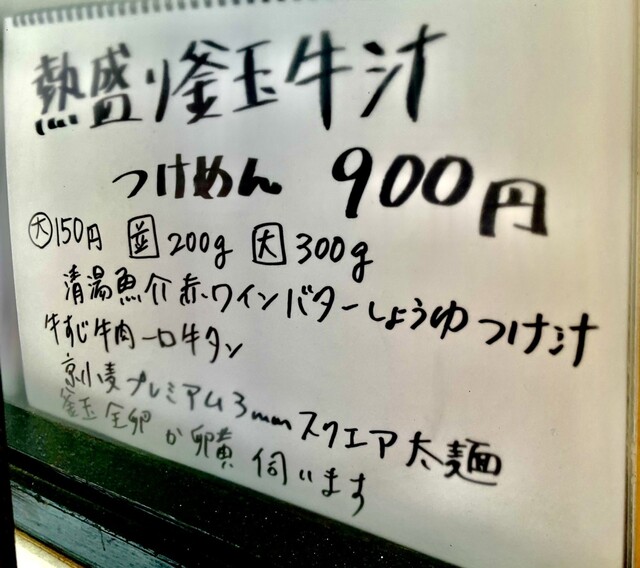 熱盛り釜玉牛汁
つけめん 900円
大150円 並200g 大300g
清湯魚介赤ワインバターしょうゆつけ汁
牛すじ牛肉一口牛タン
京小麦プレミアム3mmスクエア太麺
釜玉全卵か卵黄伺います